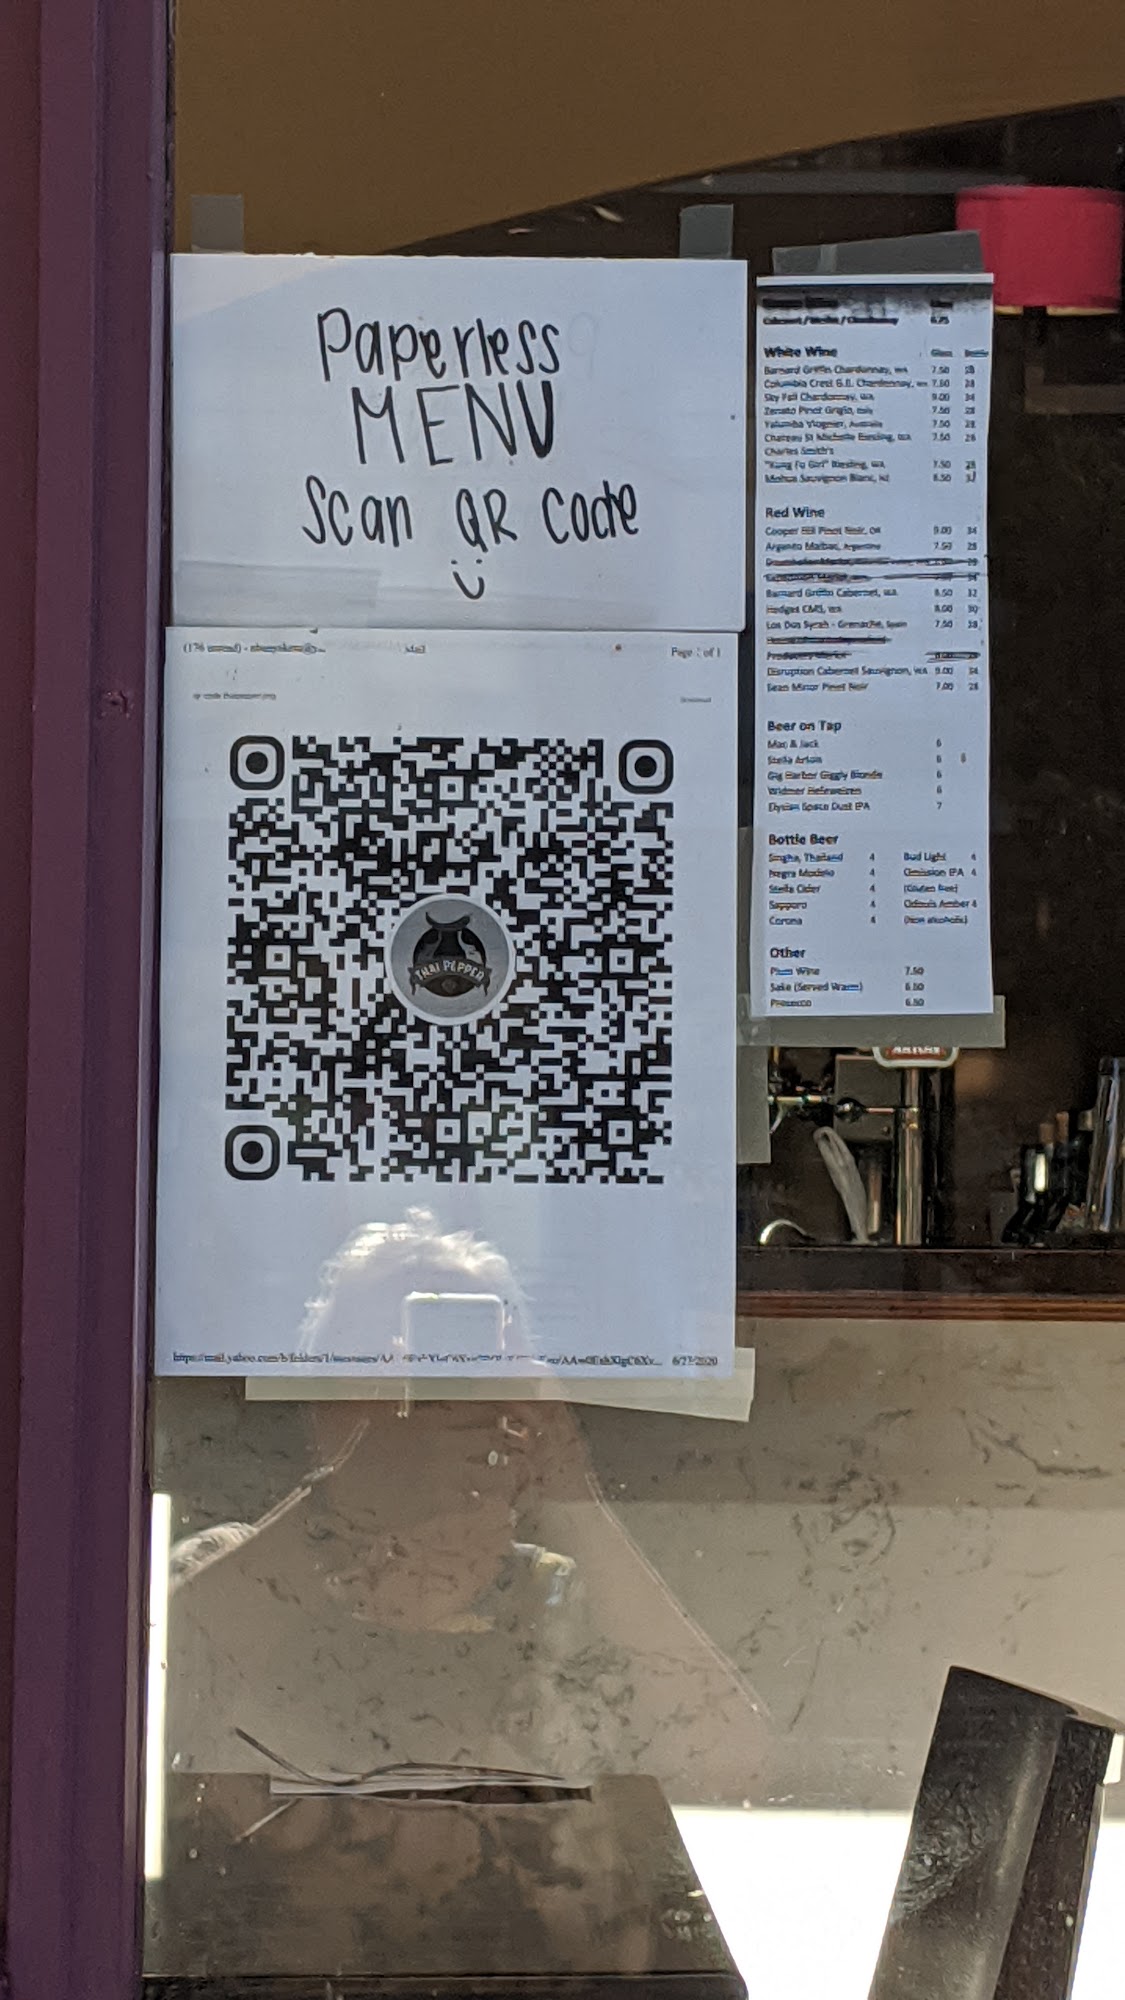 Paperless
MENU
Scan QR code
Page 1 of 1
THAI PEPPER
6/27/2020
Cabernet / Merlot / Chardonnay 6.75
White Wine Glass Bottle
Barnard Griffin Chardonnay, WA 7.50 28
Columbia Crest G.E. Chardonnay, WA 7.50 28
Sky Fall Chardonnay, WA 9.00 34
Zenato Pinot Grigio, Italy 7.50 28
Yalumba Viognier, Australia 7.50 28
Chateau St Michelle Riesling, WA 7.50 28
Charles Smith's
"Kung Fu Girl" Riesling, WA 7.50 28
Mohua Sauvignon Blanc, NZ 8.50 32
Red Wine
Cooper Hill Pinot Noir, OR 9.00 34
Argento Malbec, Argentina 7.50 28
Barnard Griffin Cabernet, WA 8.50 32
Hedges CMS, WA 8.00 30
Los Dos Syrah - Grenache, Spain 7.50 28
Disruption Cabernet Sauvignon, WA 9.00 34
Sean Minor Pinot Noir 7.00 28
Beer on Tap
Mac & Jack 6
Stella Artois 6 8
Gig Harbor Giggly Blonde 6
Widmer Hefeweizen 6
Elysian Space Dust IPA 7
Bottle Beer
Singha, Thailand 4 Bud Light 4
Negra Modelo 4 Omission IPA 4
Stella Cider 4 (Gluten free)
Sapporo 4 Odouls Amber 4
Corona 4 (Non alcoholic)
Other
Plum Wine 7.50
Sake (Served Warm) 6.50
Prosecco 6.50